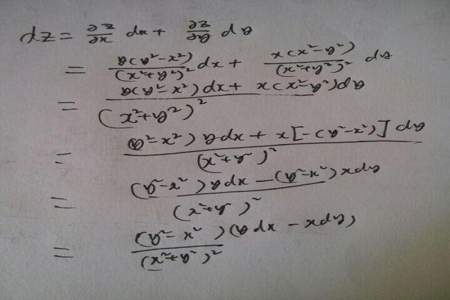 dz = ∂z/∂x dx + ∂z/∂y dy
= y(y²-x²)/(x²+y²)² dx + x(x²-y²)/(x²+y²)² dy
= y(y²-x²)dx + x(x²-y²)dy / (x²+y²)²
= (y²-x²) y dx + x[-(y²-x²)] dy / (x²+y²)²
= (y²-x²) y dx - (y²-x²) x dy / (x²+y²)²
= (y²-x²)(y dx - x dy) / (x²+y²)²